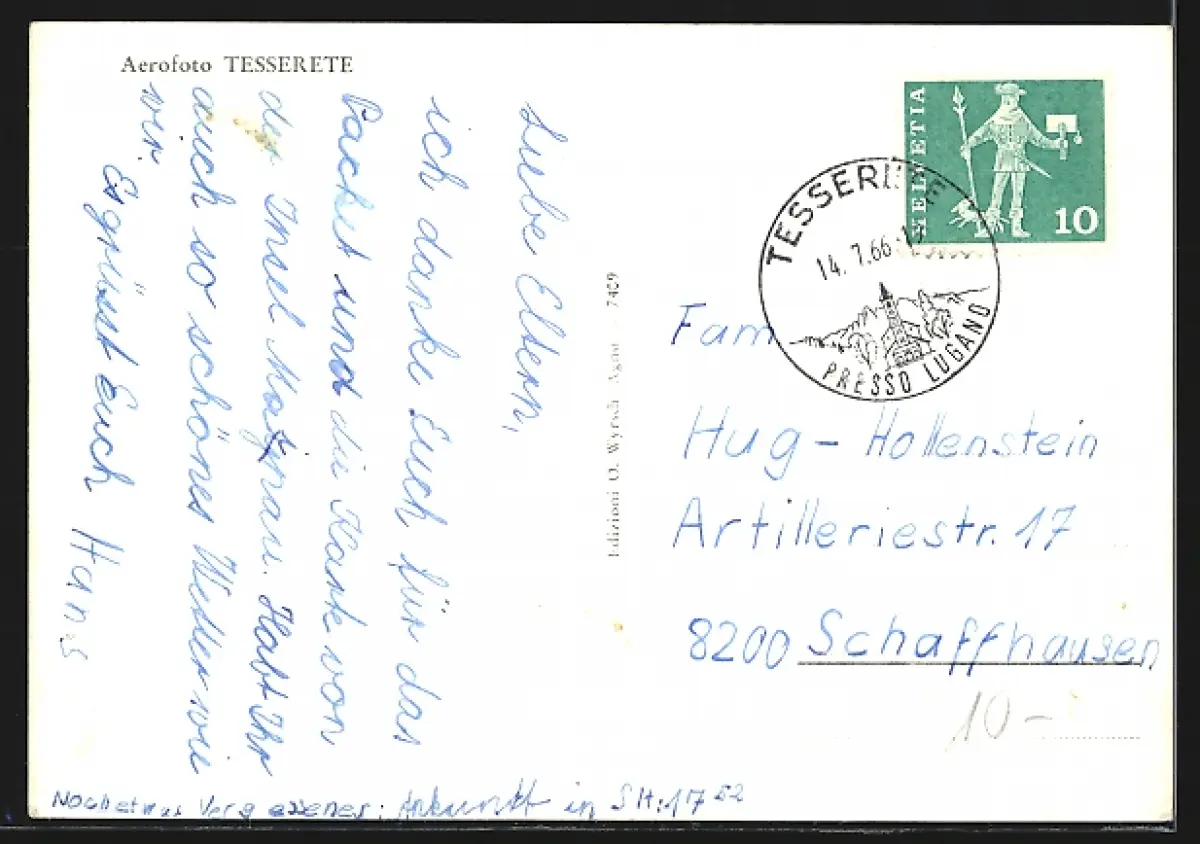 Aerofoto TESSERETE
Liebe Eltern,
ich danke Euch für das
Packet und die Karte von
der Insel Mainau. Habt Ihr
auch so schönes Wetter wie
wir. Es grüsst Euch Hans
Noch etwas Vergessenes: Ankunft in SH: 17 52
Edizioni O. Wyrsch Agno 7409
HELVETIA
10
TESSERETE
14. 7.66
PRESSO LUGANO
Fam
Hug - Hollenstein
Artilleriestr. 17
8200 Schaffhausen
10 -